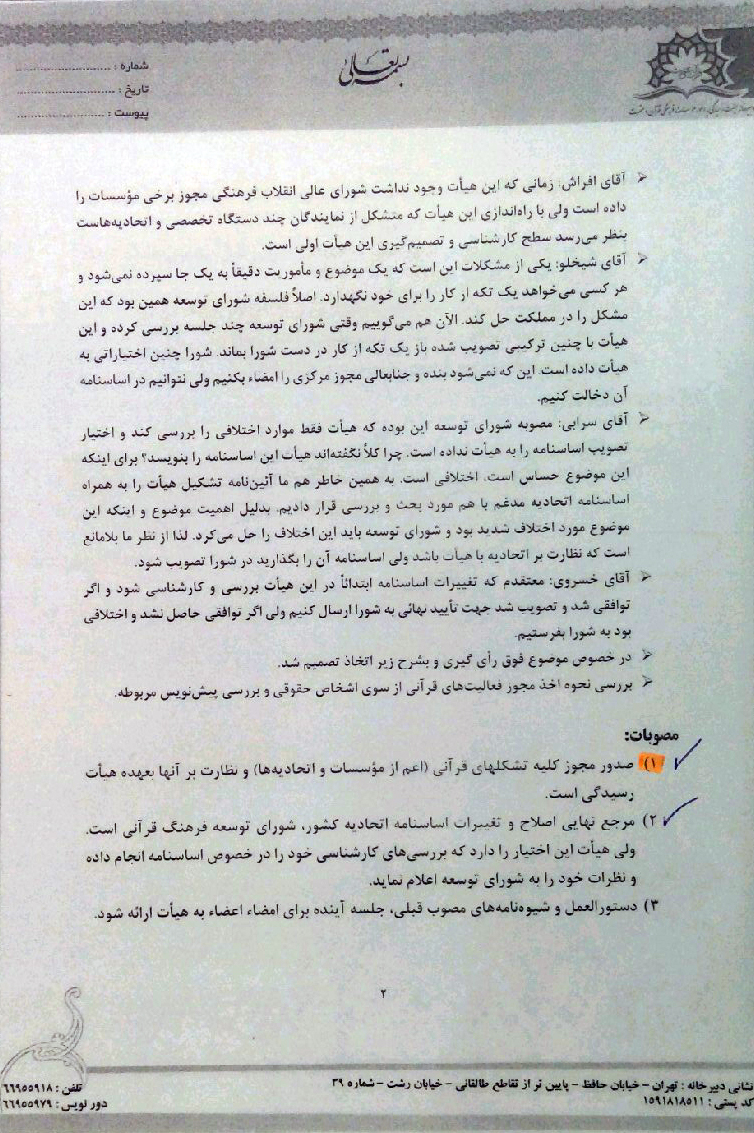 بسمه تعالی
شماره : ..............................
تاریخ : ..............................
پیوست : ..............................
آقای افراش: زمانی که این هیأت وجود نداشت شورای عالی انقلاب فرهنگی مجوز برخی مؤسسات را
داده است ولی با راه‌اندازی این هیأت که متشکل از نمایندگان چند دستگاه تخصصی و اتحادیه‌هاست
بنظر می‌رسد سطح کارشناسی و تصمیم‌گیری این هیأت اولی است.
آقای شیخلو: یکی از مشکلات این است که یک موضوع و مأموریت دقیقاً به یک جا سپرده نمی‌شود و
هر کسی می‌خواهد یک تکه از کار را برای خود نگهدارد. اصلاً فلسفه شورای توسعه همین بود که این
مشکل را در مملکت حل کند. الآن هم می‌گوییم وقتی شورای توسعه چند جلسه بررسی کرده و این
هیأت با چنین ترکیبی تصویب شده باز یک تکه از کار در دست شورا بماند. شورا چنین اختیاراتی به
هیأت داده است. این که نمی‌شود بنده و جنابعالی مجوز مرکزی را امضاء بکنیم ولی نتوانیم در اساسنامه
آن دخالت کنیم.
آقای سرابی: مصوبه شورای توسعه این بوده که هیأت فقط موارد اختلافی را بررسی کند و اختیار
تصویب اساسنامه را به هیأت نداده است. چرا کلاً نگفته‌اند هیأت این اساسنامه را بنویسد؟ برای اینکه
این موضوع حساس است. اختلافی است. به همین خاطر هم ما آئین‌نامه تشکیل هیأت را به همراه
اساسنامه اتحادیه مدغم با هم مورد بحث و بررسی قرار دادیم. بدلیل اهمیت موضوع و اینکه این
موضوع مورد اختلاف شدید بود و شورای توسعه باید این اختلاف را حل می‌کرد. لذا از نظر ما بلامانع
است که نظارت بر اتحادیه با هیأت باشد ولی اساسنامه آن را بگذارید در شورا تصویب شود.
آقای خسروی: معتقدم که تغییرات اساسنامه ابتدائاً در این هیأت بررسی و کارشناسی شود و اگر
توافقی شد و تصویب شد جهت تأیید نهائی به شورا ارسال کنیم ولی اگر توافقی حاصل نشد و اختلافی
بود به شورا بفرستیم.
در خصوص موضوع فوق رأی گیری و بشرح زیر اتخاذ تصمیم شد.
بررسی نحوه اخذ مجوز فعالیت‌های قرآنی از سوی اشخاص حقوقی و بررسی پیش‌نویس مربوطه.
مصوبات:
۱) صدور مجوز کلیه تشکلهای قرآنی (اعم از مؤسسات و اتحادیه‌ها) و نظارت بر آنها بعهده هیأت
رسیدگی است.
۲) مرجع نهایی اصلاح و تغییرات اساسنامه اتحادیه کشور، شورای توسعه فرهنگ قرآنی است.
ولی هیأت این اختیار را دارد که بررسی‌های کارشناسی خود را در خصوص اساسنامه انجام داده
و نظرات خود را به شورای توسعه اعلام نماید.
۳) دستورالعمل و شیوه‌نامه‌های مصوب قبلی، جلسه آینده برای امضاء اعضاء به هیأت ارائه شود.
۲
نشانی دبیرخانه : تهران – خیابان حافظ – پایین تر از تقاطع طالقانی – خیابان رشت – شماره ۳۹
تلفن : ۶۶۹۵۵۹۱۸
کد پستی : ۱۵۹۱۸۱۸۵۱۱
دور نویس : ۶۶۹۵۵۹۷۹